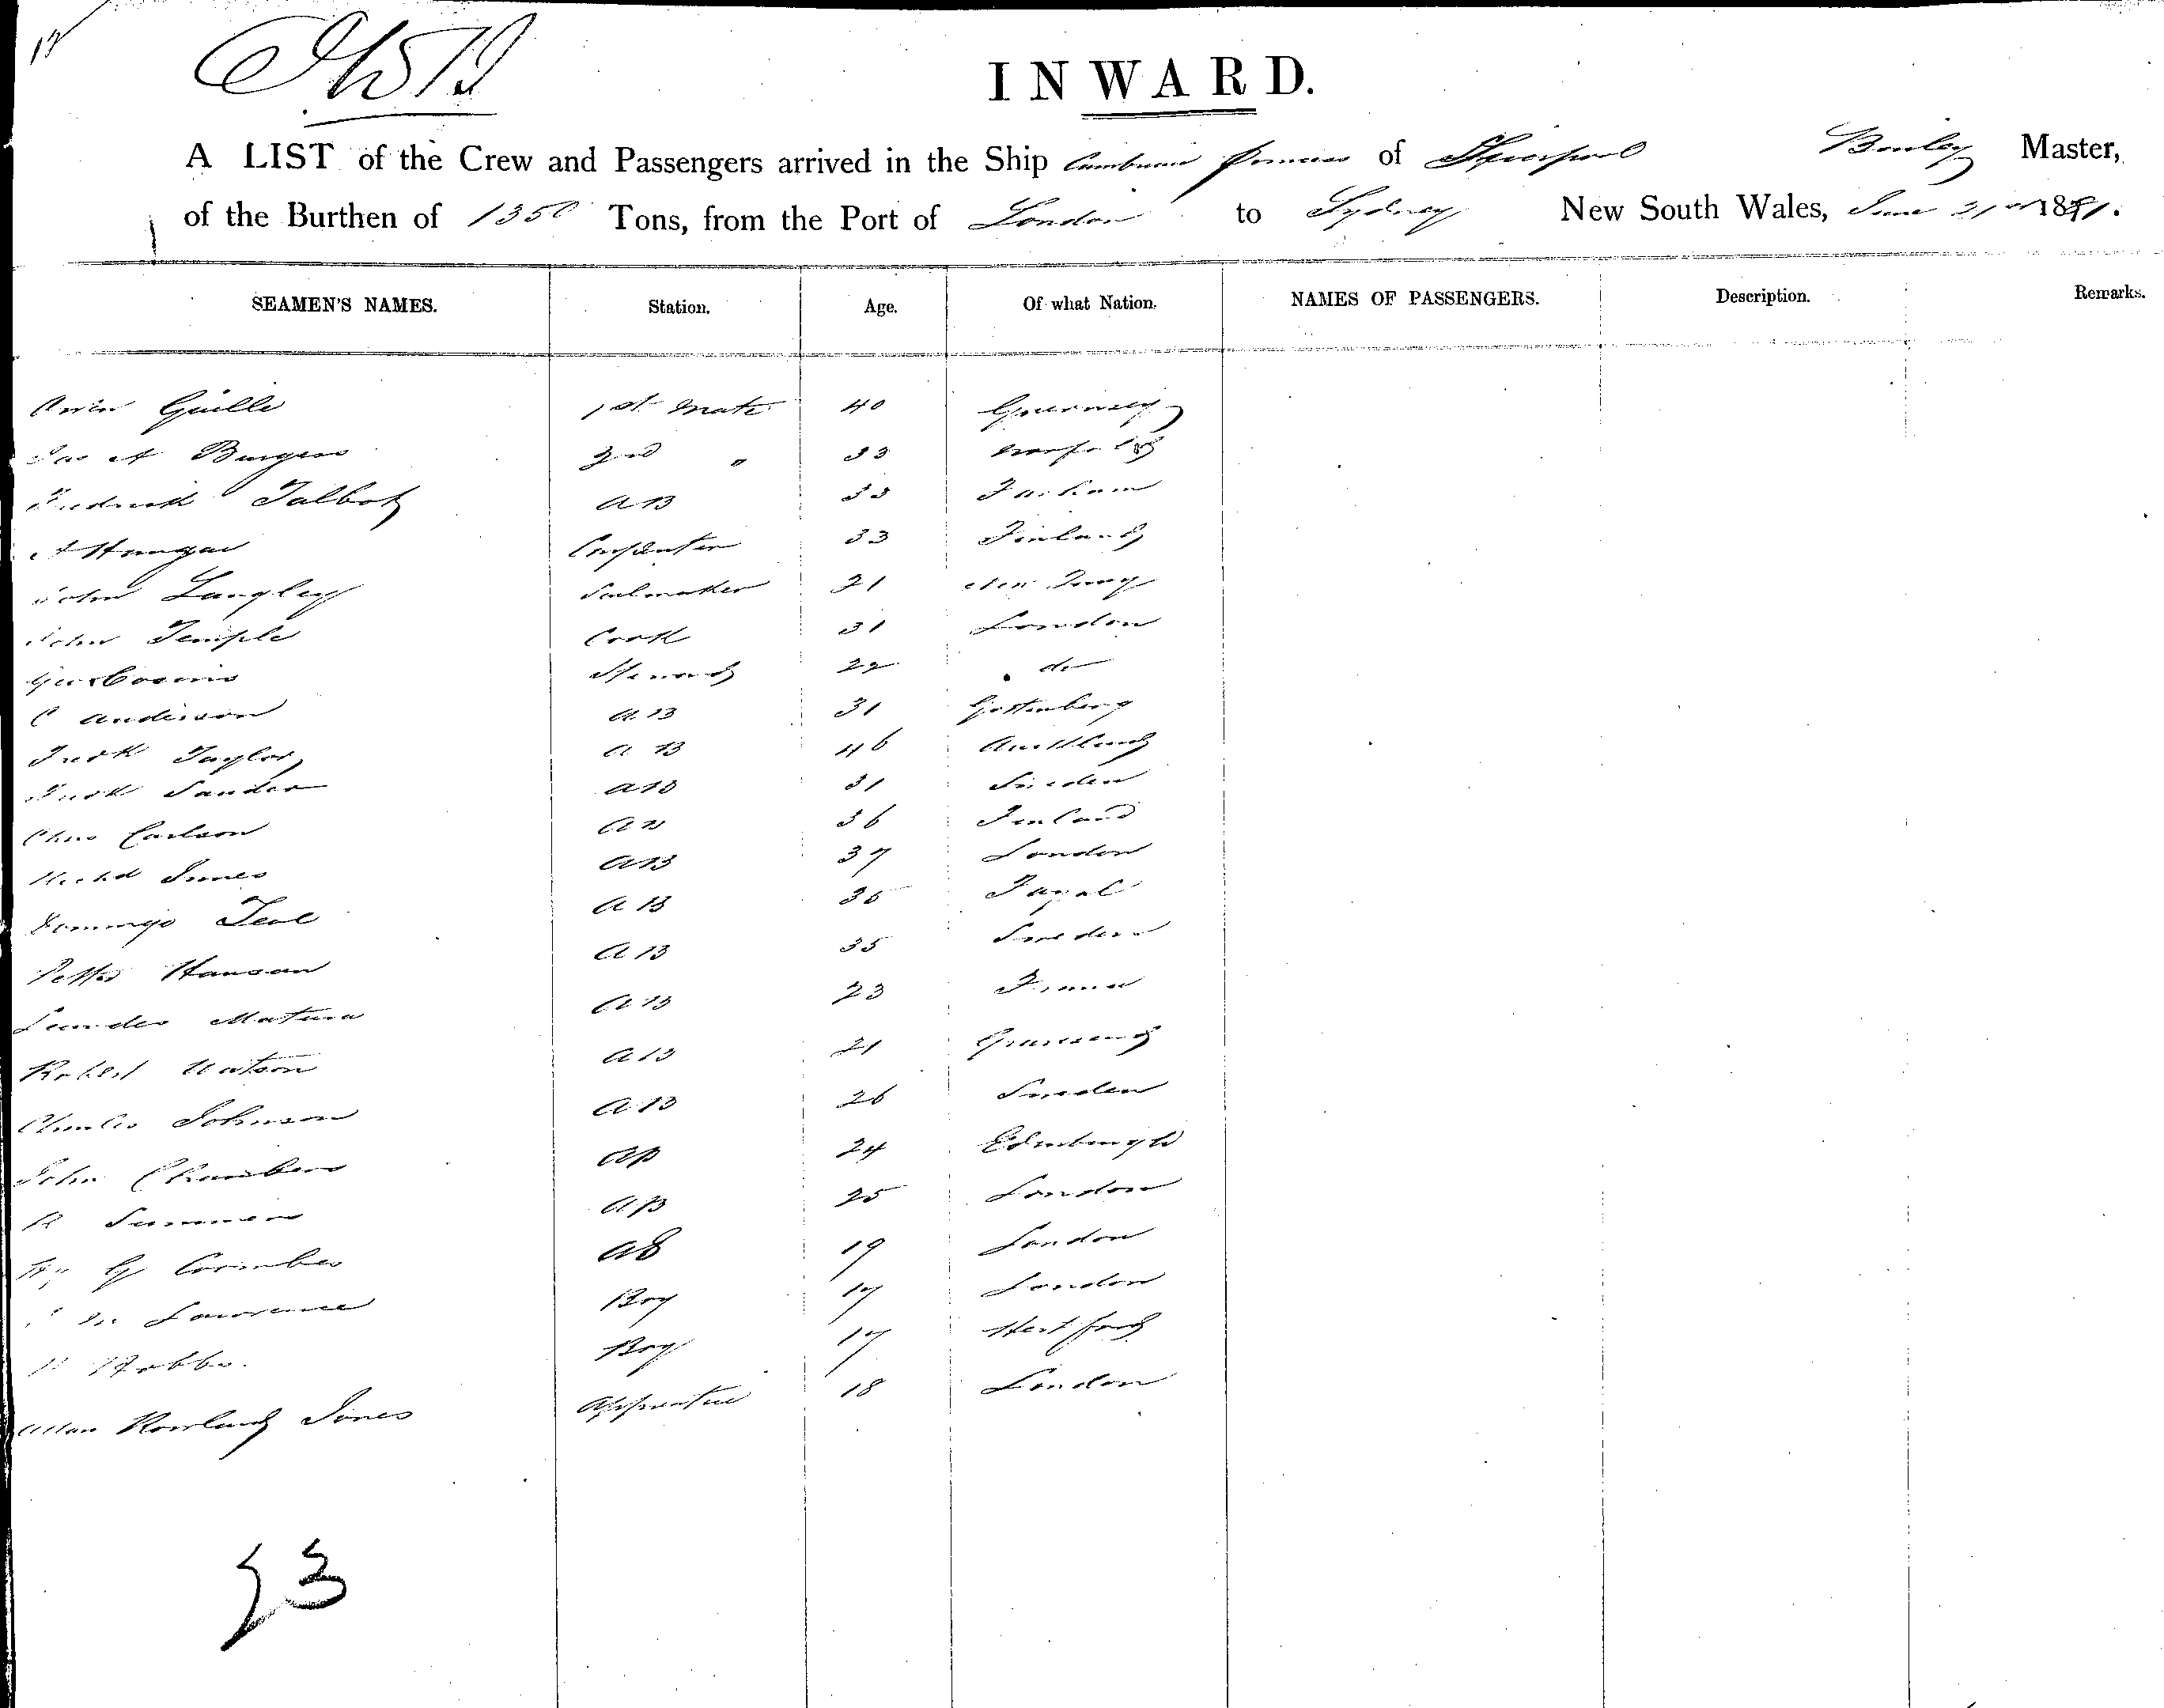 INWARD.
A LIST of the Crew and Passengers arrived in the Ship Cambrian Princess of Liverpool Master,
of the Burthen of 1350 Tons, from the Port of London to Sydney New South Wales, June 21st 1881.
SEAMEN'S NAMES. Station. Age. Of what Nation. NAMES OF PASSENGERS. Description. Remarks.
Guille 1st Mate 40 Guernsey
Jas A Burgess 2nd " 33 Norfolk
Fredrick Talbot AB 33
Carpenter 33 Finland
John Langley Sailmaker 21
John Temple Cook 31 London
Steward 22 do
C Anderson AB 31 Gottenberg
Fredk Taylor AB 46 Auckland
Fredk Sander AB 31 Sweden
Chas Carlson AB 36 Finland
Richd Innes AB 37 London
Domingo AB 35 Fayal
Hansan AB 35 Sweden
AB 23
Robert Watson AB 21 Gravesend
Charles Johnson AB 26 Sweden
John Chambers AB 24 Edinburgh
R Summers AB 25 London
AB 19 London
Lawrence Boy 17 London
Hobbs. Boy 17 Hertford
Allan Rowland Jones Apprentice 18 London
23